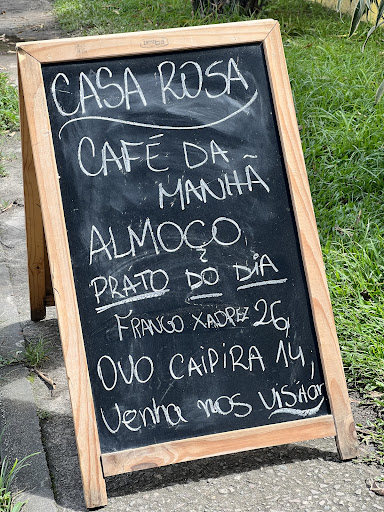 CASA ROSA
CAFÉ DA
MANHÃ
ALMOÇO
PRATO DO DIA
FRANGO XADREZ 26,
OVO CAIPIRA 14,
Venha nos visitar